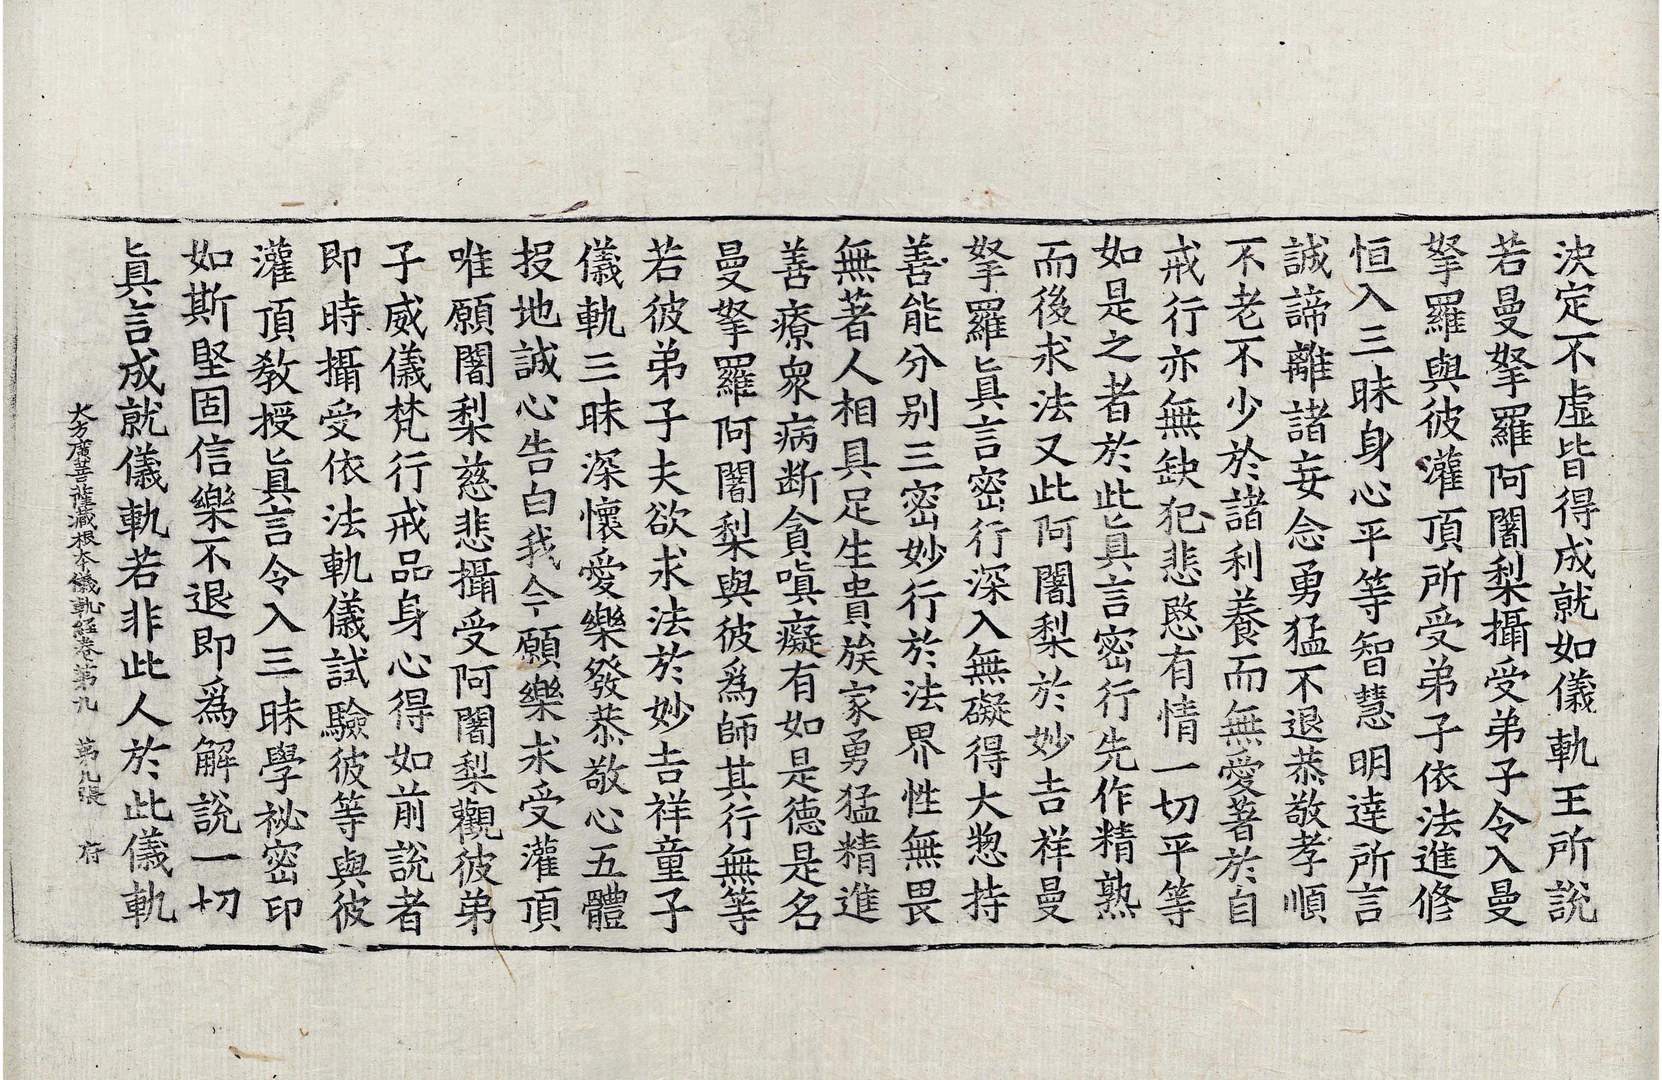 決定不虛皆得成就如儀軌王所說
若曼拏羅阿闍梨攝受弟子令入曼
拏羅與彼灌頂所受弟子依法進修
恒入三昧身心平等智慧明達所言
誠諦離諸妄念勇猛不退恭敬孝順
不老不少於諸利養而無愛著於自
戒行亦無缺犯悲愍有情一切平等
如是之者於此眞言密行先作精熟
而後求法又此阿闍梨於妙吉祥曼
拏羅眞言密行深入無礙得大惣持
善能分别三密妙行於法界性無畏
無著人相具足生貴族家勇猛精進
善療衆病断貪嗔癡有如是德是名
曼拏羅阿闍梨與彼爲師其行無等
若彼弟子夫欲求法於妙吉祥童子
儀軌三昧深懷愛樂發恭敬心五體
投地誠心告白我今願樂求受灌頂
唯願闍梨慈悲攝受阿闍梨觀彼弟
子威儀梵行戒品身心得如前說者
即時攝受依法軌儀試驗彼等與彼
灌頂教授眞言令入三昧學祕密印
如斯堅固信樂不退即爲解說一切
眞言成就儀軌若非此人於此儀軌
大方廣菩薩藏根本儀軌經卷第九 第九張 府